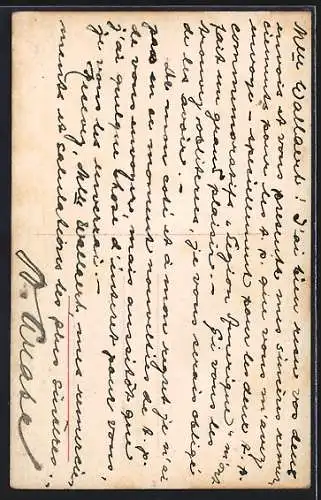 Mlle Wallaert! J'ai bien reçu vos deux
envois et vous présente mes sincères remer-
ciments pour les t.p. que vous m'avez
envoyé - spécialement pour les deux t.p.
commemoratifs "Légion Amérique" m'ont
fait un grand plaisir. - Si vous les
trouvez oblitérés, je vous serais obligé
de les avoir. -
De mon coté et à mon regret je n'ai
pas en ce moment nouvelles de t.p.
de vous envoyer, mais aussitôt que
j'ai quelque chose d'interet pour vous,
je vous les enverrai. -
Mlle Wallaert, mes remerci-
ments et salutations les plus sincères.